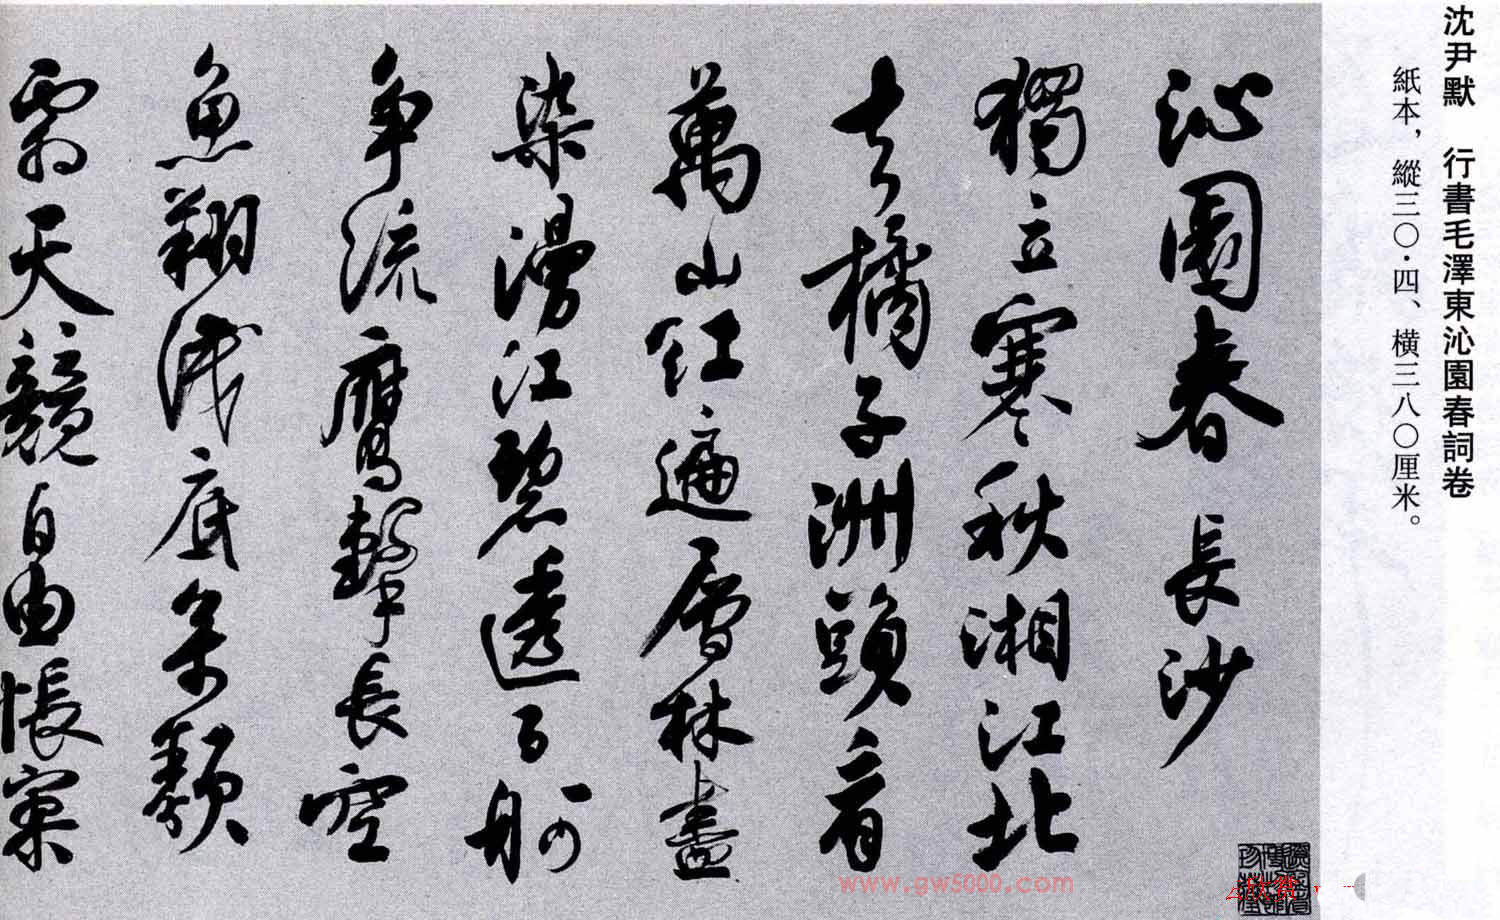 沈尹默 行書毛澤東沁園春詞卷
紙本，縱三〇·四、横三八〇厘米。
沁園春 長沙
獨立寒秋湘江北
去橘子洲頭看
萬山紅遍層林盡
染漫江碧透百舸
争流鷹擊長空
魚翔淺底萬類
霜天競自由悵寥
www.gw5000.com